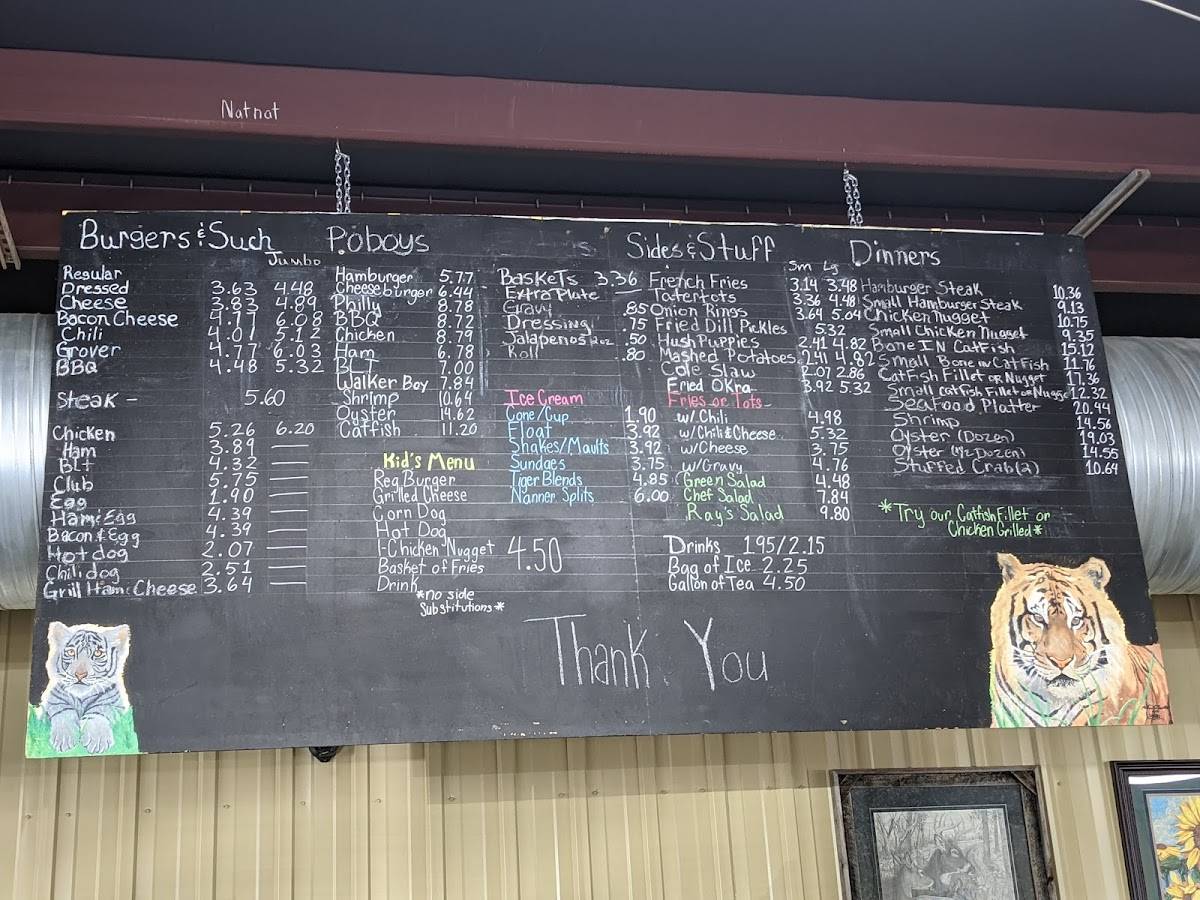 Nat nat
Burgers & Such
Jumbo
Regular
Dressed 3.63 4.48
Cheese 3.83 4.89
Bacon Cheese 4.77 6.08
Chili 4.01 5.12
Grover 4.77 6.03
BBQ 4.48 5.32
Steak - 5.60
Chicken 5.26 6.20
Ham 3.89
BLt 4.32
Club 5.75
Egg 1.90
Ham & Egg 4.39
Bacon & Egg 4.39
Hot dog 2.07
Chili dog 2.51
Grill Ham & Cheese 3.64
Poboys
Hamburger 5.77
Cheeseburger 6.44
Philly 8.78
BBQ 8.72
Chicken 8.79
Ham 6.78
BLT 7.00
Walker Boy 7.84
Shrimp 10.64
Oyster 14.62
Catfish 11.20
Kid's Menu
Reg Burger
Grilled Cheese
Corn Dog
Hot Dog
1-Chicken Nugget 4.50
Basket of Fries
Drink
*no side
Substitutions*
Baskets 3.36
Extra Plate
Gravy .85
Dressing .75
Jalapenos 2oz .50
Roll .80
Ice Cream
Cone/Cup 1.90
Float 3.92
Shakes/Maults 3.92
Sundaes 3.75
Tiger Blends 4.85
Nanner Splits 6.00
Sides & Stuff
Sm Lg
French Fries 3.14 3.48
Tatertots 3.36 4.48
Onion Rings 3.64 5.04
Fried Dill Pickles 5.32
Hush Puppies 2.41 4.82
Mashed Potatoes 2.41 4.82
Cole Slaw 2.07 2.86
Fried Okra 3.92 5.32
Fries or Tots
w/Chili 4.98
w/Chili & Cheese 5.32
w/Cheese 3.75
w/Gravy 4.76
Green Salad 4.48
Chef Salad 7.84
Ray's Salad 9.80
Drinks 1.95/2.15
Bag of Ice 2.25
Gallon of Tea 4.50
Dinners
Hamburger Steak 10.36
Small Hamburger Steak 9.13
Chicken Nugget 10.75
Small Chicken Nugget 9.35
Bone IN Catfish 15.12
Small Bone in Catfish 11.76
Catfish Fillet or Nugget 17.36
Small catfish Fillet or Nugget 12.32
Seafood Platter 20.94
Shrimp 14.56
Oyster (Dozen) 19.03
Oyster (1/2 Dozen) 14.55
Stuffed Crab (2) 10.64
*Try our Catfish Fillet or
Chicken Grilled*
Thank You